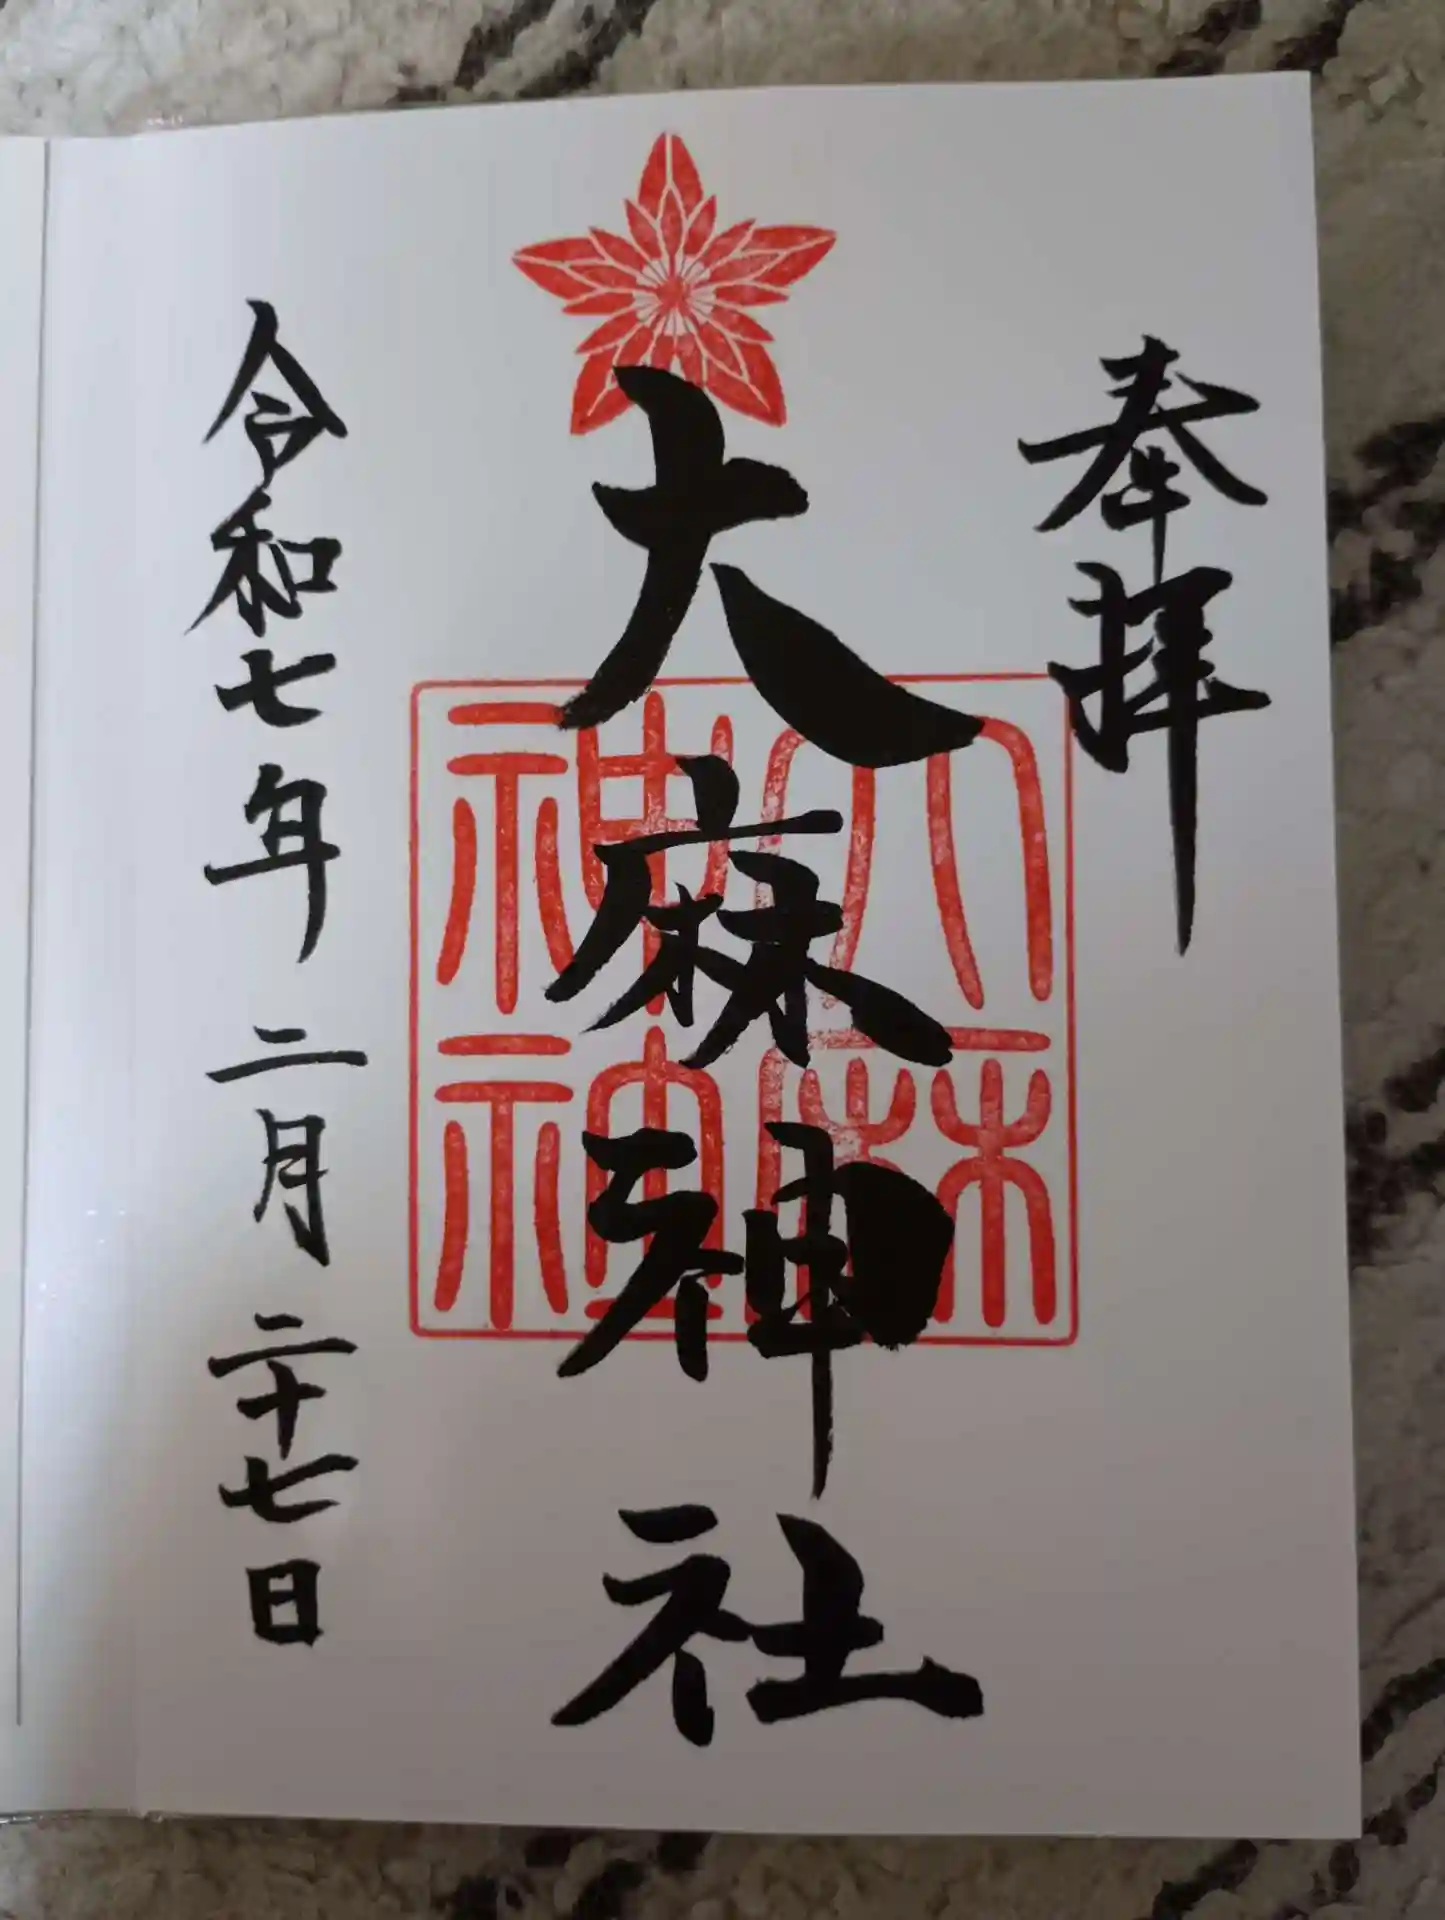 奉拝
大麻神社
大麻神社
令和七年二月二十七日